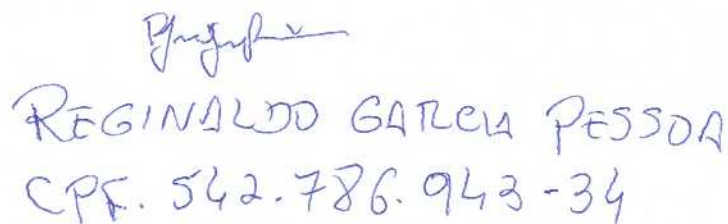 REGINALDO GARCIA PESSOA
CPF. 542.786.943-34